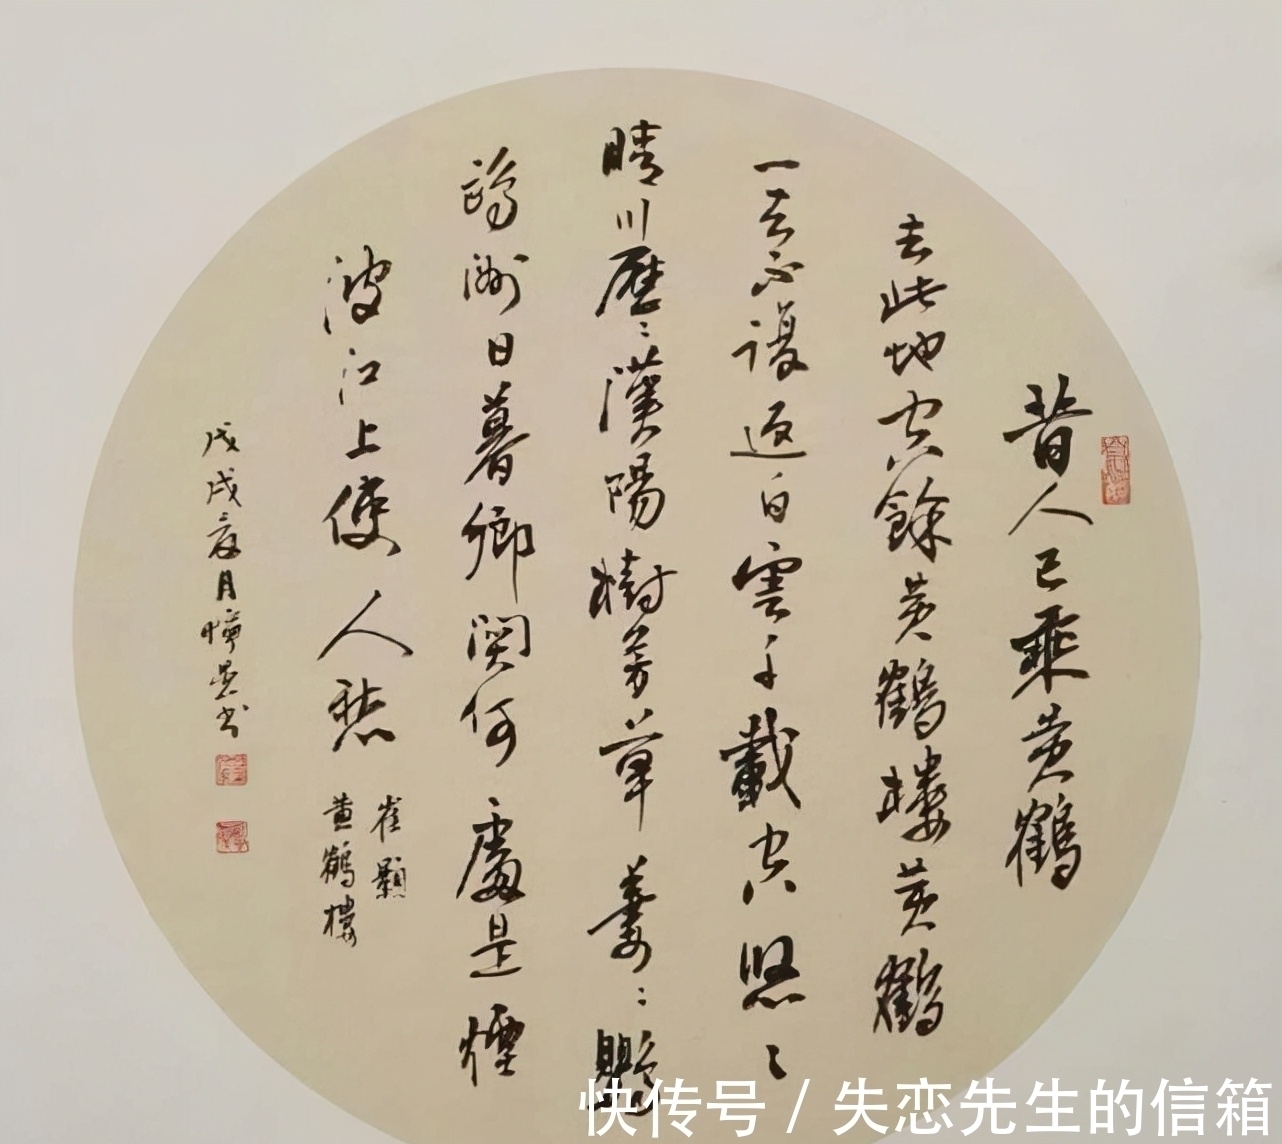 昔人已乘黄鶴
去此地空餘黄鶴樓黄鶴
一去不復返白雲千載空悠々
晴川歷々漢陽樹芳草萋々鸚
鵡洲日暮鄉関何處是煙
波江上使人愁
崔顥
黄鶴樓
戊戌夏月书
快传号 / 失恋先生的信箱